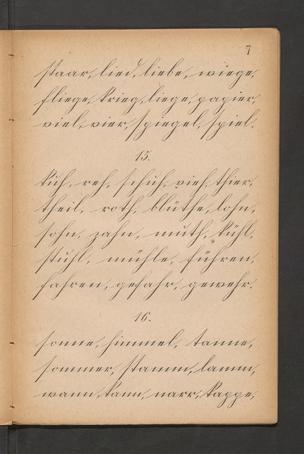 7
staar, lied, liebe, wiege,
fliege, krieg, liege, papier,
viel, vier, spiegel, spiel.
15.
kuh, reh, schuh, vieh, thier,
theil, roth, blüthe, lohn,
sohn, zahn, muth, kühl,
stuhl, mühle, führen,
fahren, gefahr, gewehr.
16.
sonne, himmel, tanne,
sommer, stamm, lamm,
wann, kann, narr, kappe,